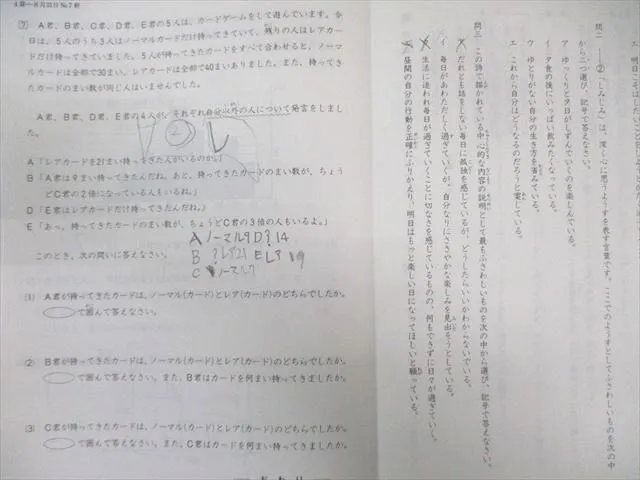 ７ A君、B君、C君、D君、E君の5人は、カードゲームをして遊んでいます。今
日は、5人のうち3人はノーマルカードだけ持ってきていて、残りの人はレアカー
ドだけ持っていました。5人が持ってきたカードをすべて合わせると、ノーマ
ルカードは全部で30まい、レアカードは全部で40まいありました。また、持ってき
たカードのまい数が同じ人はいませんでした。
A君、B君、D君、E君の4人が、それぞれ自分以外の人について発言をしまし
た。
A「レアカードを21まい持ってきた人がいるのか。」
B「A君は9まい持ってきたんだね。あと、持ってきたカードのまい数が、ちょう
どC君の2倍になっている人もいるね。」
D「E君はレアカードだけ持ってきたんだね。」
E「あっ、持ってきたカードのまい数が、ちょうどC君の3倍の人もいるよ。」
このとき、次の問いに答えなさい。
A ノーマル9 D? 14
B ?レア21 Eレア 19
C ノーマル7
(1) A君が持ってきたカードは、ノーマル(カード)とレア(カード)のどちらでしたか。
で囲んで答えなさい。
(2) B君が持ってきたカードは、ノーマル(カード)とレア(カード)のどちらでしたか。
で囲んで答えなさい。また、B君はカードを何まい持ってきましたか。
(3) C君が持ってきたカードは、ノーマル(カード)とレア(カード)のどちらでしたか。
で囲んで答えなさい。また、C君はカードを何まい持ってきましたか。
問二 ――②「しみじみ」は、深く心に思うようすを表す言葉です。ここでのようすとしてふさわしいものを次の中
から二つ選び、記号で答えなさい。
ア ゆっくりと夕日がしずんでいくのを楽しんでいる。
イ 夕食の後にいっぱい飲みたくなっている。
ウ ゆとりがない自分の生き方を省みている。
エ これから自分はどうなるのだろうと案じている。
問三 この詩で描かれている中心的な内容の説明として最もふさわしいものを次の中から選び、記号で答えなさい。
ア だれとも話をしない毎日に孤独を感じているが、どうしたらいいかわからないでいる。
イ 毎日があわただしく過ぎていくが、自分なりにささやかな楽しみを見出そうとしている。
ウ 生活に追われ毎日が過ぎていくことに切なさを感じているものの、何もできずに日々が過ぎていく。
エ 昼間の自分の行動を正確にふりかえり、明日はもっと楽しい日になってほしいと願っている。